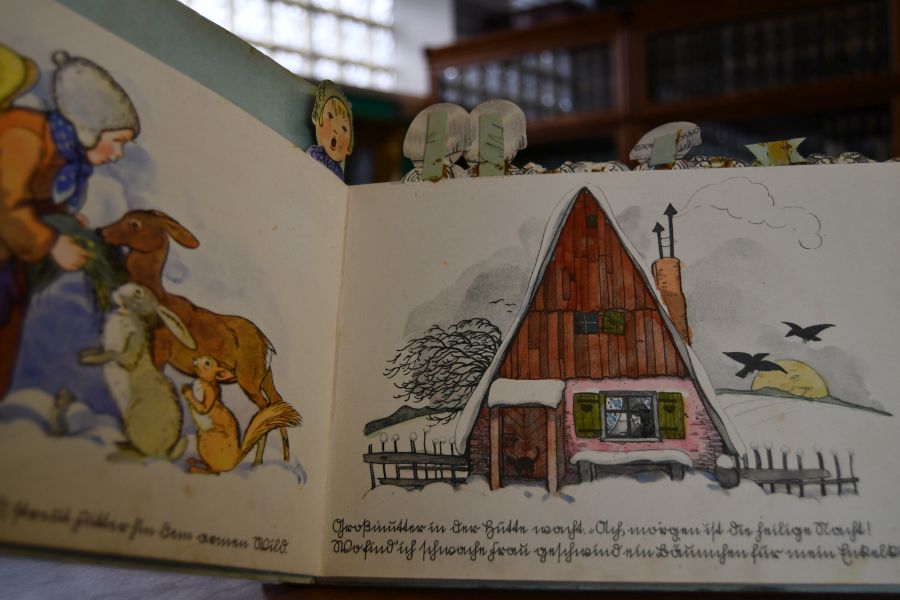 streut Futter hin dem armen Wild.
Großmutter in der Hütte wacht. „Ach, morgen ist die heilige Nacht!
Wo find' ich schwache Frau geschwind ein Bäumchen für mein Enkelk